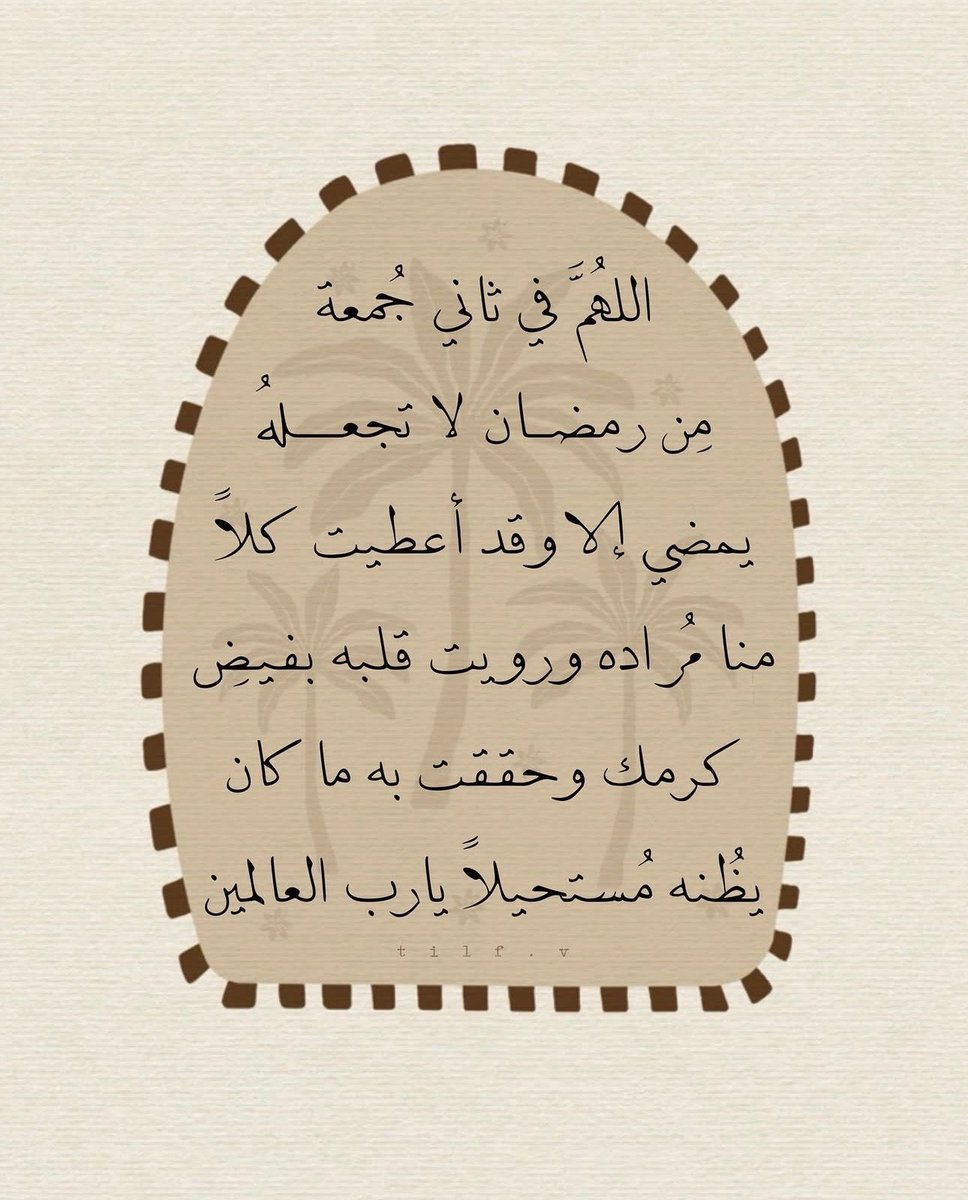 اللهُمَّ في ثاني جُمعة
مِن رمضـان لا تجعـــلهُ
يمضي إلا وقد أعطيت كلاً
منا مُراده ورويت قلبه بفيضِ
كرمك وحققت به ما كان
يظُنه مُستحيلاً يارب العالمين
tilf.v